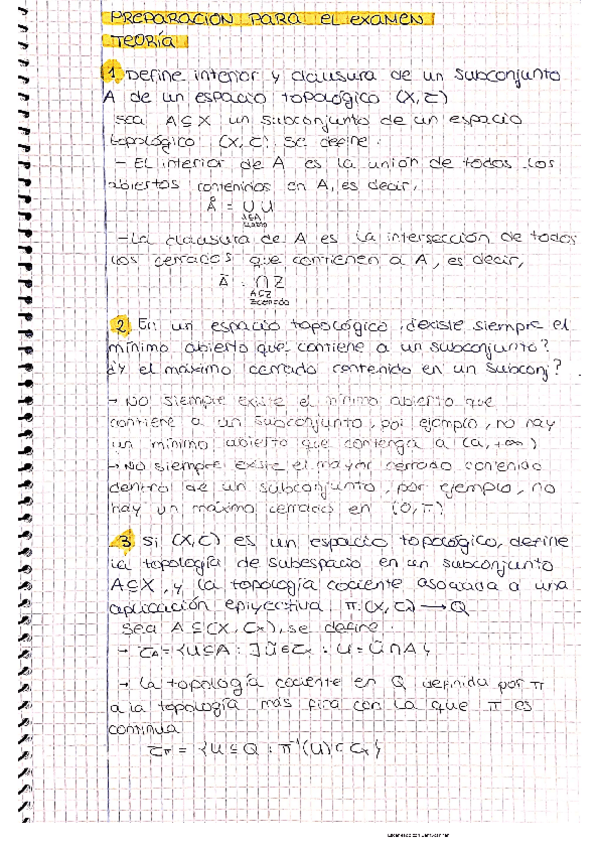 PREPARACIÓN PARA EL EXAMEN
TEORÍA
1 Define interior y clausura de un subconjunto
A de un espacio topológico (X,τ)
Sea A⊆X un subconjunto de un espacio
topológico (X,τ). Se define:
- El interior de A es la unión de todos los
abiertos contenidos en A, es decir,
Å = ∪ U
U⊆A
- La clausura de A es la intersección de todos
los cerrados que contienen a A, es decir,
Ā = ∩ Z
A⊆Z
Z cerrado
2 En un espacio topológico ¿existe siempre el
mínimo abierto que contiene a un subconjunto?
¿Y el máximo cerrado contenido en un subconj?
→ No siempre existe el mínimo abierto que
contiene a un subconjunto, por ejemplo, no hay
un mínimo abierto que contenga a (a, +∞)
→ No siempre existe el mayor cerrado contenido
dentro de un subconjunto, por ejemplo, no
hay un máximo cerrado en
3 Si (X,τ) es un espacio topológico, define
la topología de subespacio en un subconjunto
A⊆X, y la topología cociente asociada a una
aplicación epiyectiva π:(X,τx) → Q
Sea A⊆(X,τx), se define
→ τA = {U⊆A : ∃Ũ∈τx : U = Ũ∩A}
→ La topología cociente en Q definida por π
a la topología más fina con la que π es
continua
τπ = {U⊆Q : π⁻¹(U)∈τx}